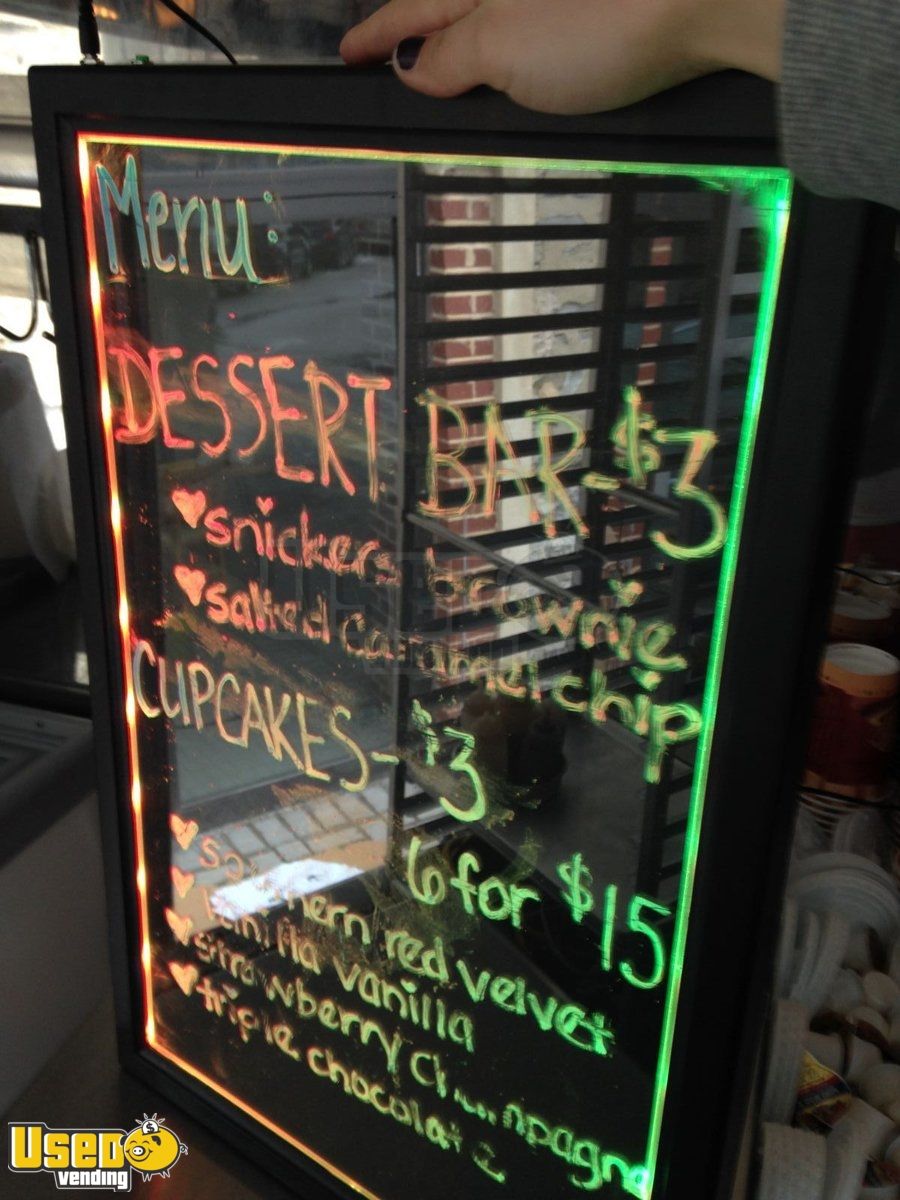 Menu:
DESSERT BAR - $3
snickers brownie
salted caramel chip
CUPCAKES - $3
6 for $15
southern red velvet
vanilla vanilla
strawberry champagne
triple chocolate
USED
vending